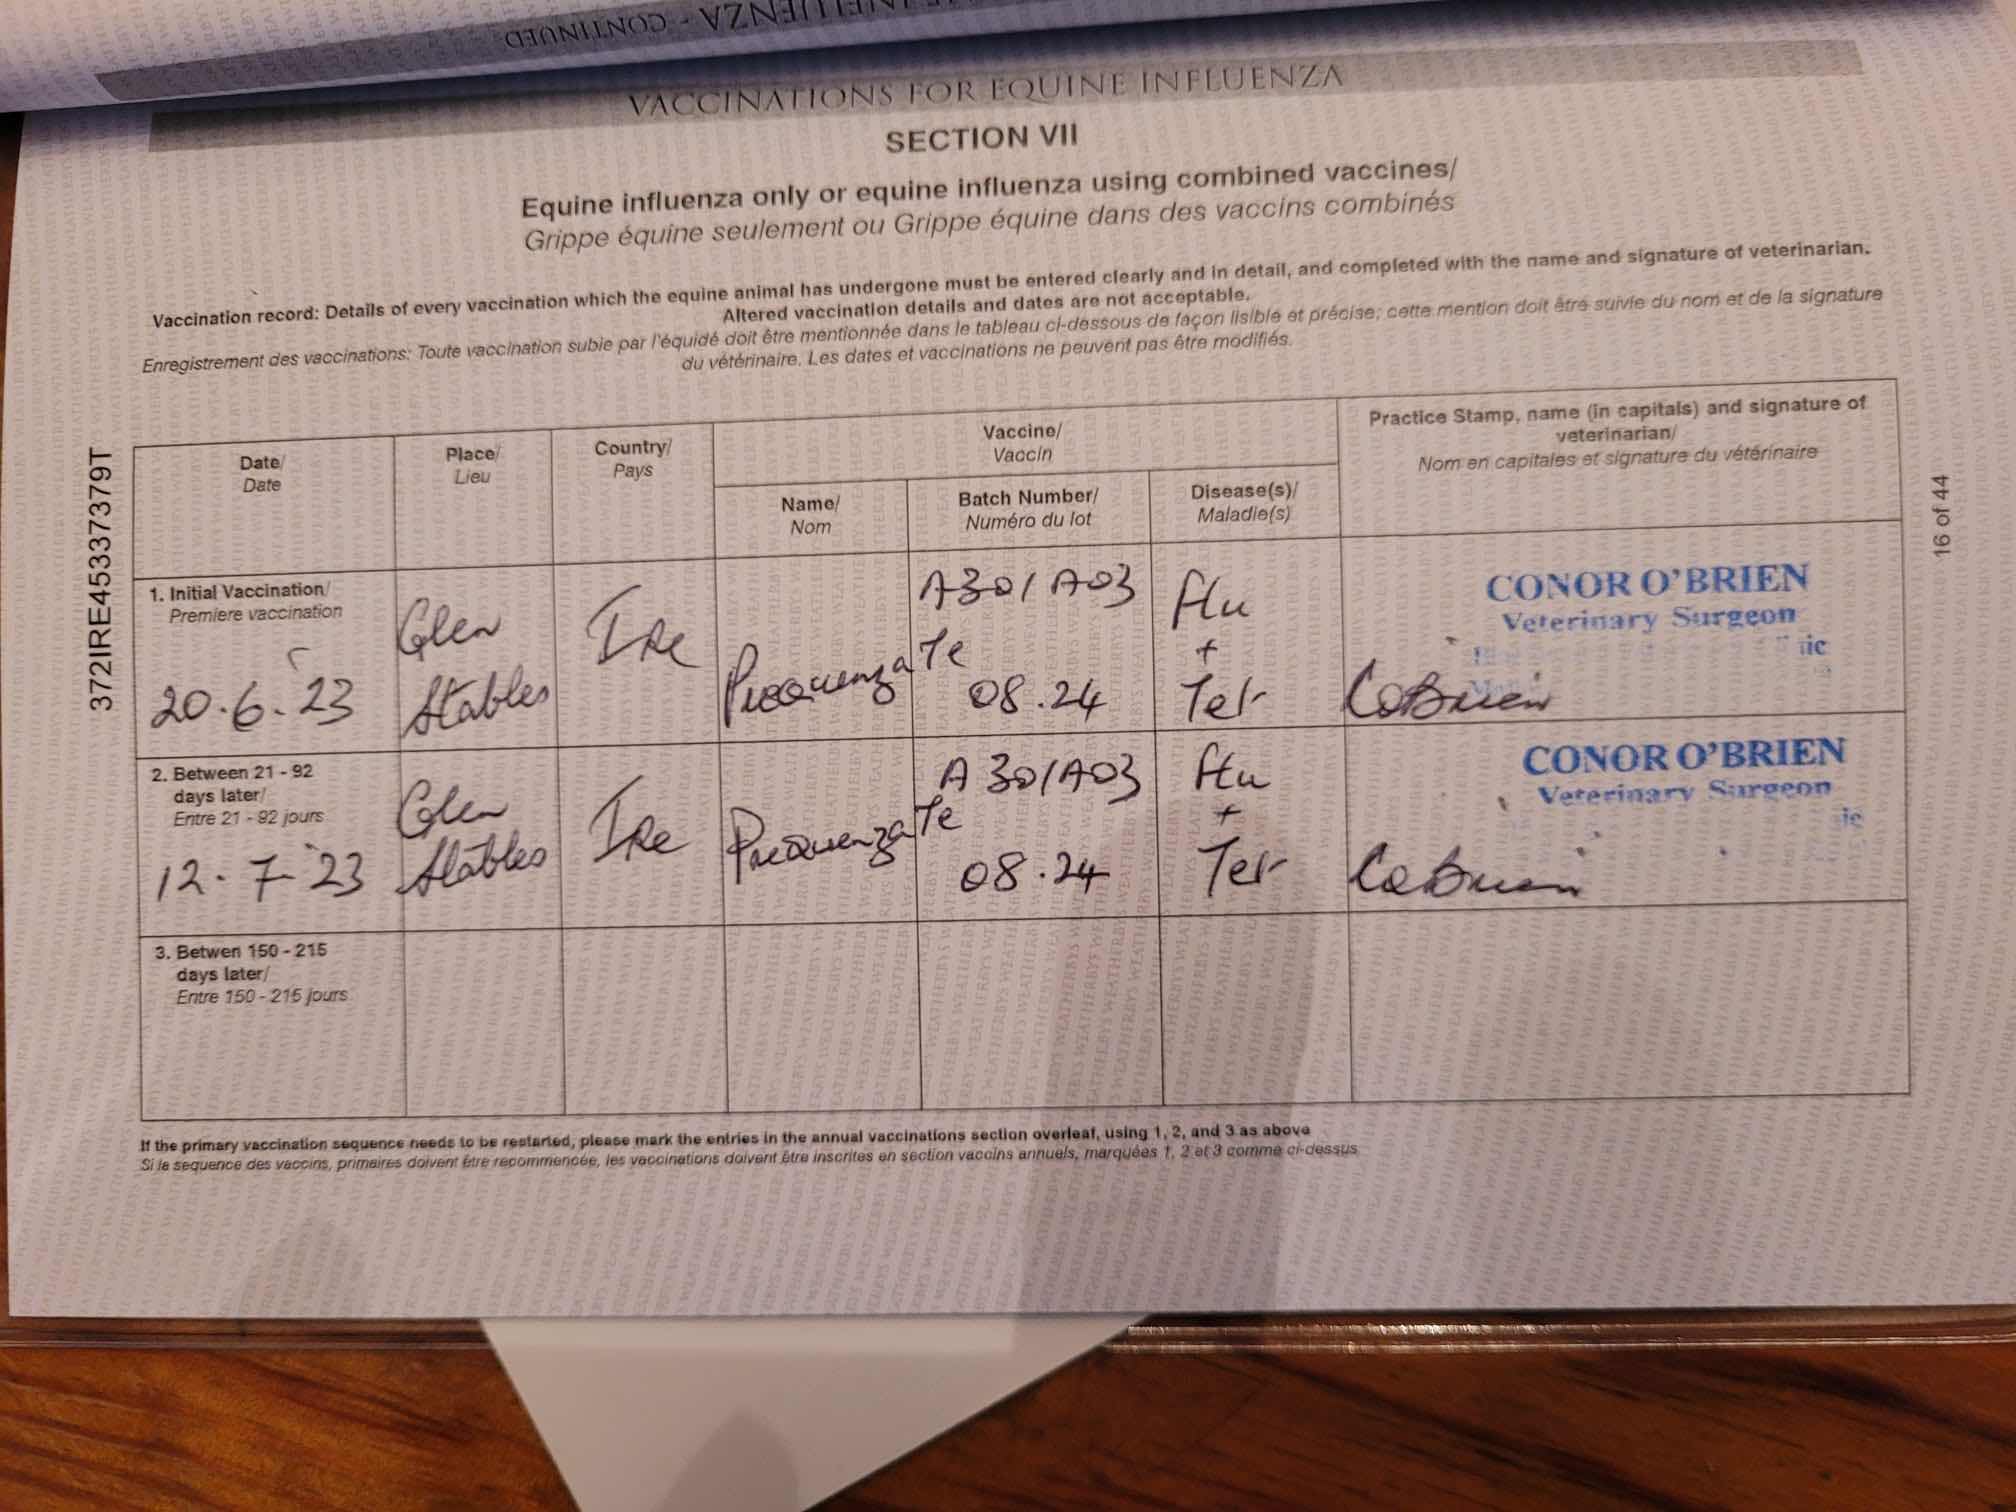 INFLUENZA - CONTINUED
VACCINATIONS FOR EQUINE INFLUENZA
SECTION VII
Equine influenza only or equine influenza using combined vaccines/
Grippe équine seulement ou Grippe équine dans des vaccins combinés
Vaccination record: Details of every vaccination which the equine animal has undergone must be entered clearly and in detail, and completed with the name and signature of veterinarian.
Altered vaccination details and dates are not acceptable.
Enregistrement des vaccinations: Toute vaccination subie par l'équidé doit être mentionnée dans le tableau ci-dessous de façon lisible et précise; cette mention doit être suivie du nom et de la signature
du vétérinaire. Les dates et vaccinations ne peuvent pas être modifiés.
372IRE45337379T
16 of 44
Date/
Date
Place/
Lieu
Country/
Pays
Vaccine/
Vaccin
Name/
Nom
Batch Number/
Numéro du lot
Disease(s)/
Maladie(s)
Practice Stamp, name (in capitals) and signature of
veterinarian/
Nom en capitales et signature du vétérinaire
1. Initial Vaccination/
Premiere vaccination
20.6.23
Glen
Stables
IRe
Prequenza Te
A301A03
08.24
Flu
+
Tet
CONOR O'BRIEN
Veterinary Surgeon
COBrien
2. Between 21 - 92
days later/
Entre 21 - 92 jours
12.7.23
Glen
Stables
IRe
Prequenza Te
A301A03
08.24
Flu
+
Tet
CONOR O'BRIEN
Veterinary Surgeon
COBrien
3. Betwen 150 - 215
days later/
Entre 150 - 215 jours
If the primary vaccination sequence needs to be restarted, please mark the entries in the annual vaccinations section overleaf, using 1, 2, and 3 as above
Si la sequence des vaccins, primaires doivent être recommencée, les vaccinations doivent être inscrites en section vaccins annuels, marquées 1, 2 et 3 comme ci-dessus